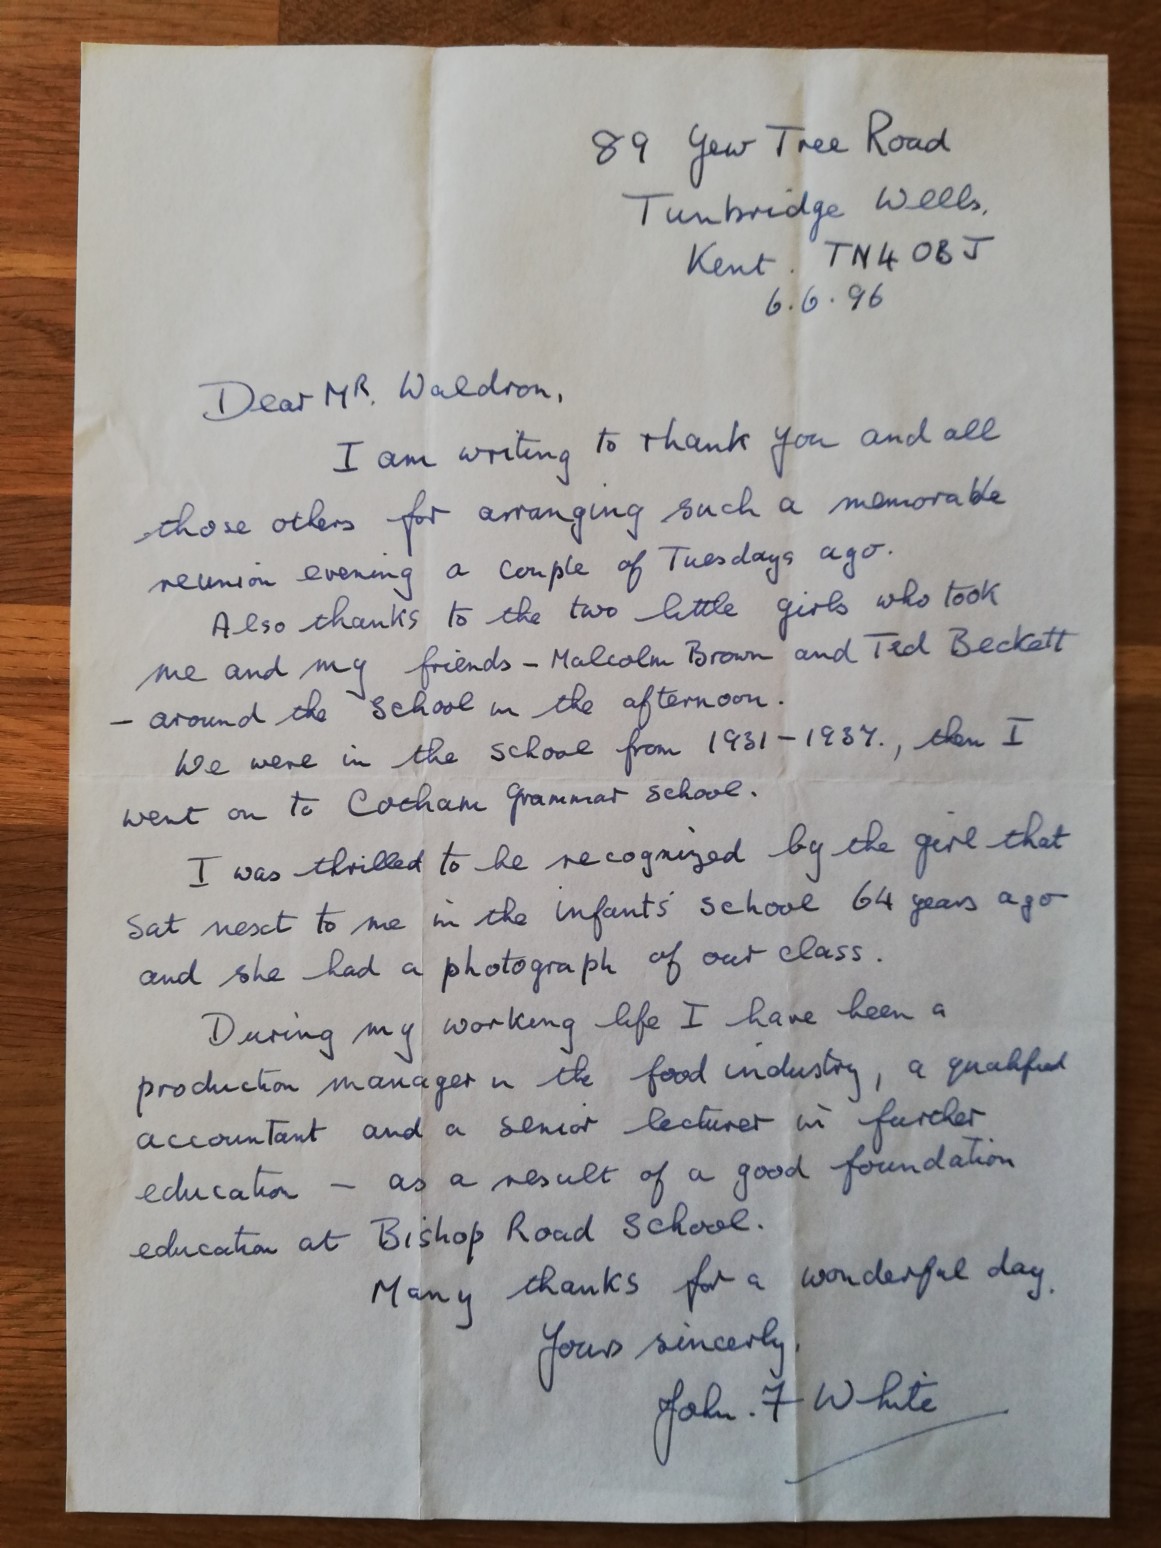 89 Yew Tree Road
Tunbridge Wells,
Kent. TN4 0BJ
6.6.96
Dear MR. Waldron,
I am writing to thank you and all
those others for arranging such a memorable
reunion evening a couple of Tuesdays ago.
Also thanks to the two little girls who took
me and my friends – Malcolm Brown and Ted Beckett
– around the school in the afternoon.
We were in the school from 1931–1937., then I
went on to Cotham Grammar School.
I was thrilled to be recognized by the girl that
sat next to me in the infants' school 64 years ago
and she had a photograph of our class.
During my working life I have been a
production manager in the food industry, a qualified
accountant and a senior lecturer in further
education – as a result of a good foundation
education at Bishop Road School.
Many thanks for a wonderful day.
Yours sincerly,
John. F White